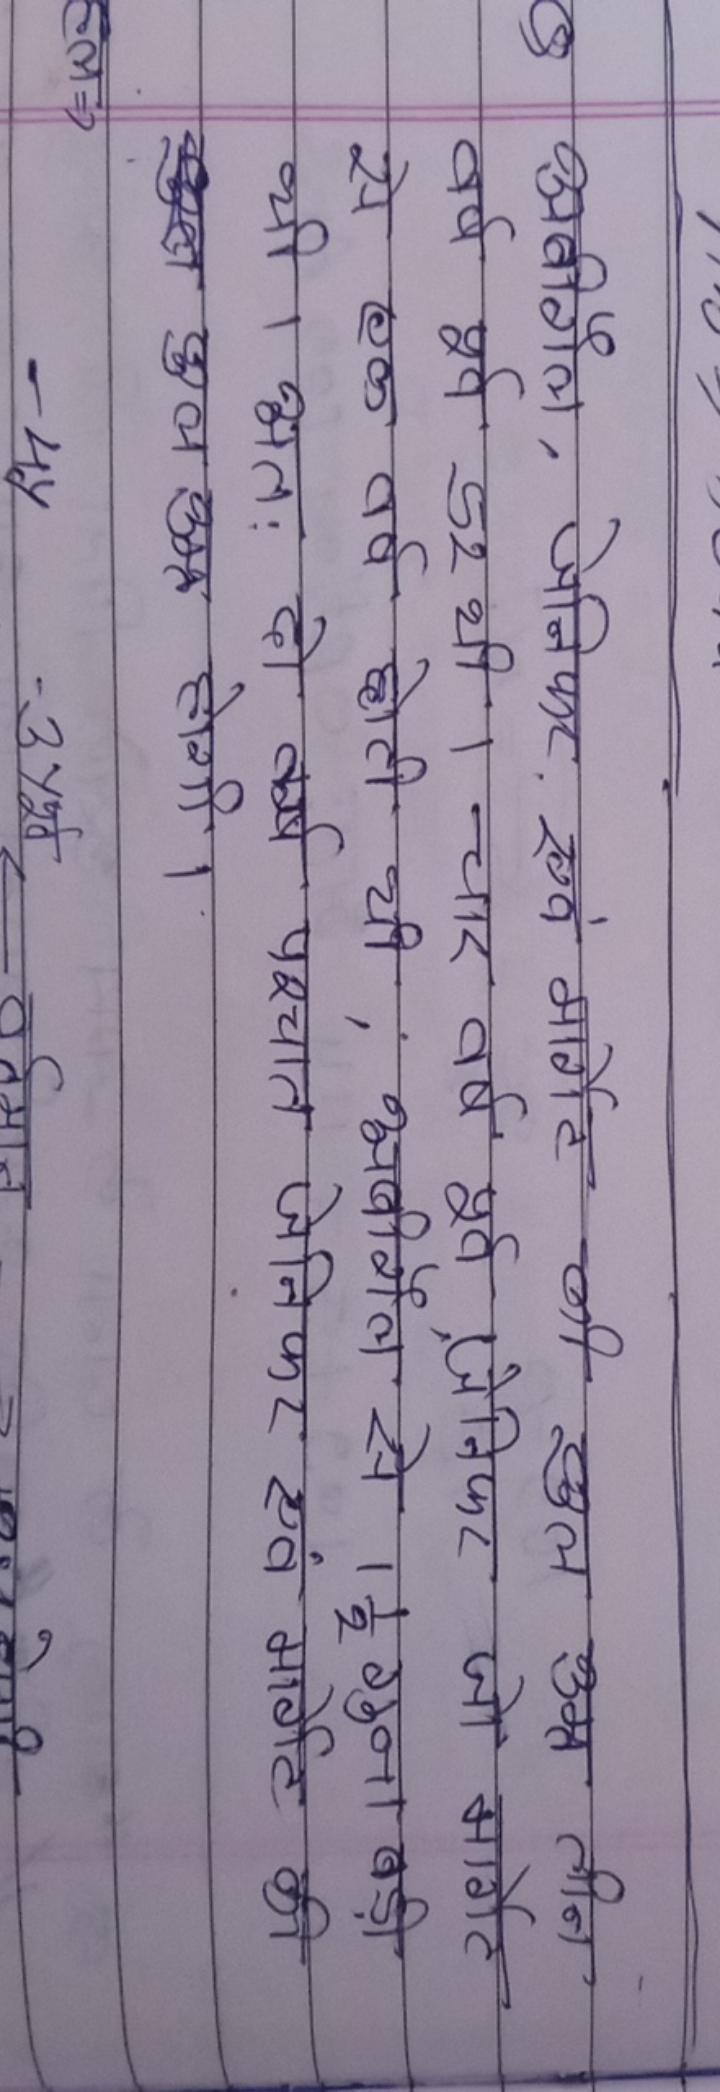 अबीगेल, जेनिफर एवं मार्गेट की कुल उम्र तीन
वर्ष पूर्व 52 थी। चार वर्ष पूर्व जेनिफर जो मार्गेट
से एक वर्ष छोटी थी, अबीगेल से 1 1/2 गुना बड़ी
थी। अतः दो वर्ष पश्चात जेनिफर एवं मार्गेट की
कुल उम्र होगी।
हल⇒
-4y -3y पूर्व ← वर्तमान